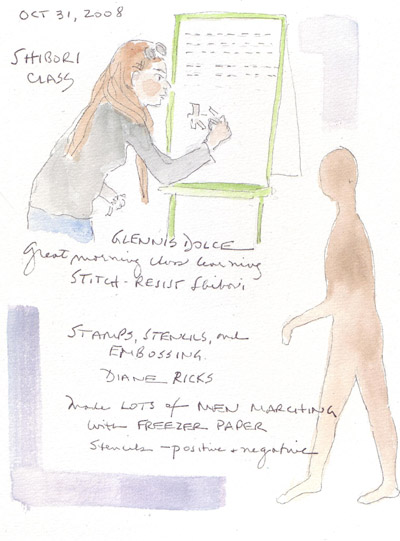 OCT 31, 2008
SHIBORI
CLASS
GLENNIS DOLCE
Great morning class learning
STITCH-RESIST Shibori
STAMPS, STENCILS, and
EMBOSSING.
DIANE RICKS
Made LOTS of MEN MARCHING
with FREEZER PAPER
Stencils - positive + negative